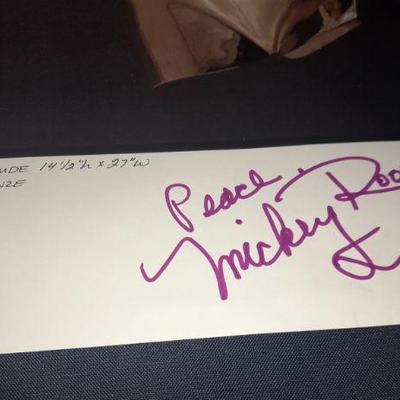 UDE 14 1/2"h x 27"W
NZE
Peace
Mickey Roo